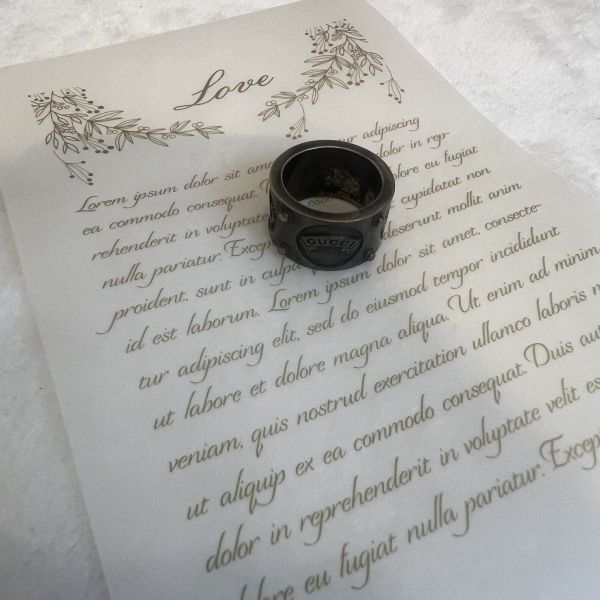 Love
Lorem ipsum dolor sit ame adipiscing
ea commodo consequat. T in rep-
rehenderit in volupta olore eu fugiat
nulla pariatur. Except cupidatat non
proident, sunt in culpa deserunt mollit anim
id est laborum. Lorem ipsum dolor sit amet, consecte-
tur adipiscing elit, sed do eiusmod tempor incididunt
ut labore et dolore magna aliqua. Ut enim ad minim
veniam, quis nostrud exercitation ullamco laboris n
ut aliquip ex ea commodo consequat. Duis aut
dolor in reprehenderit in voluptate velit es
dolore eu fugiat nulla pariatur. Excep
GUCCI